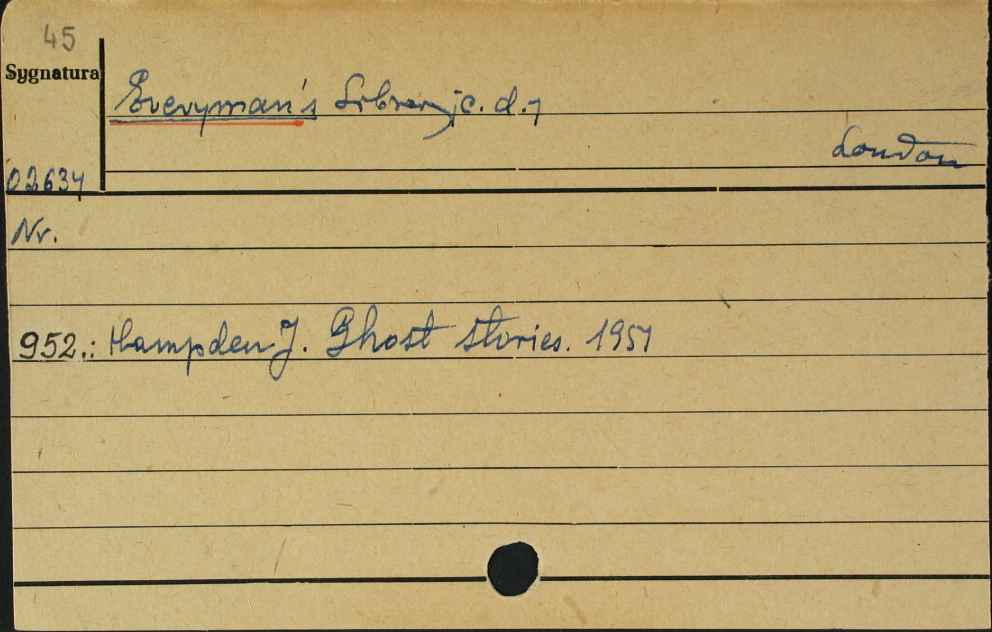 45
Sygnatura
Everyman's Library c. d. 7
London
02634
Nr.
952.: Hampden J. Ghost stories. 1957